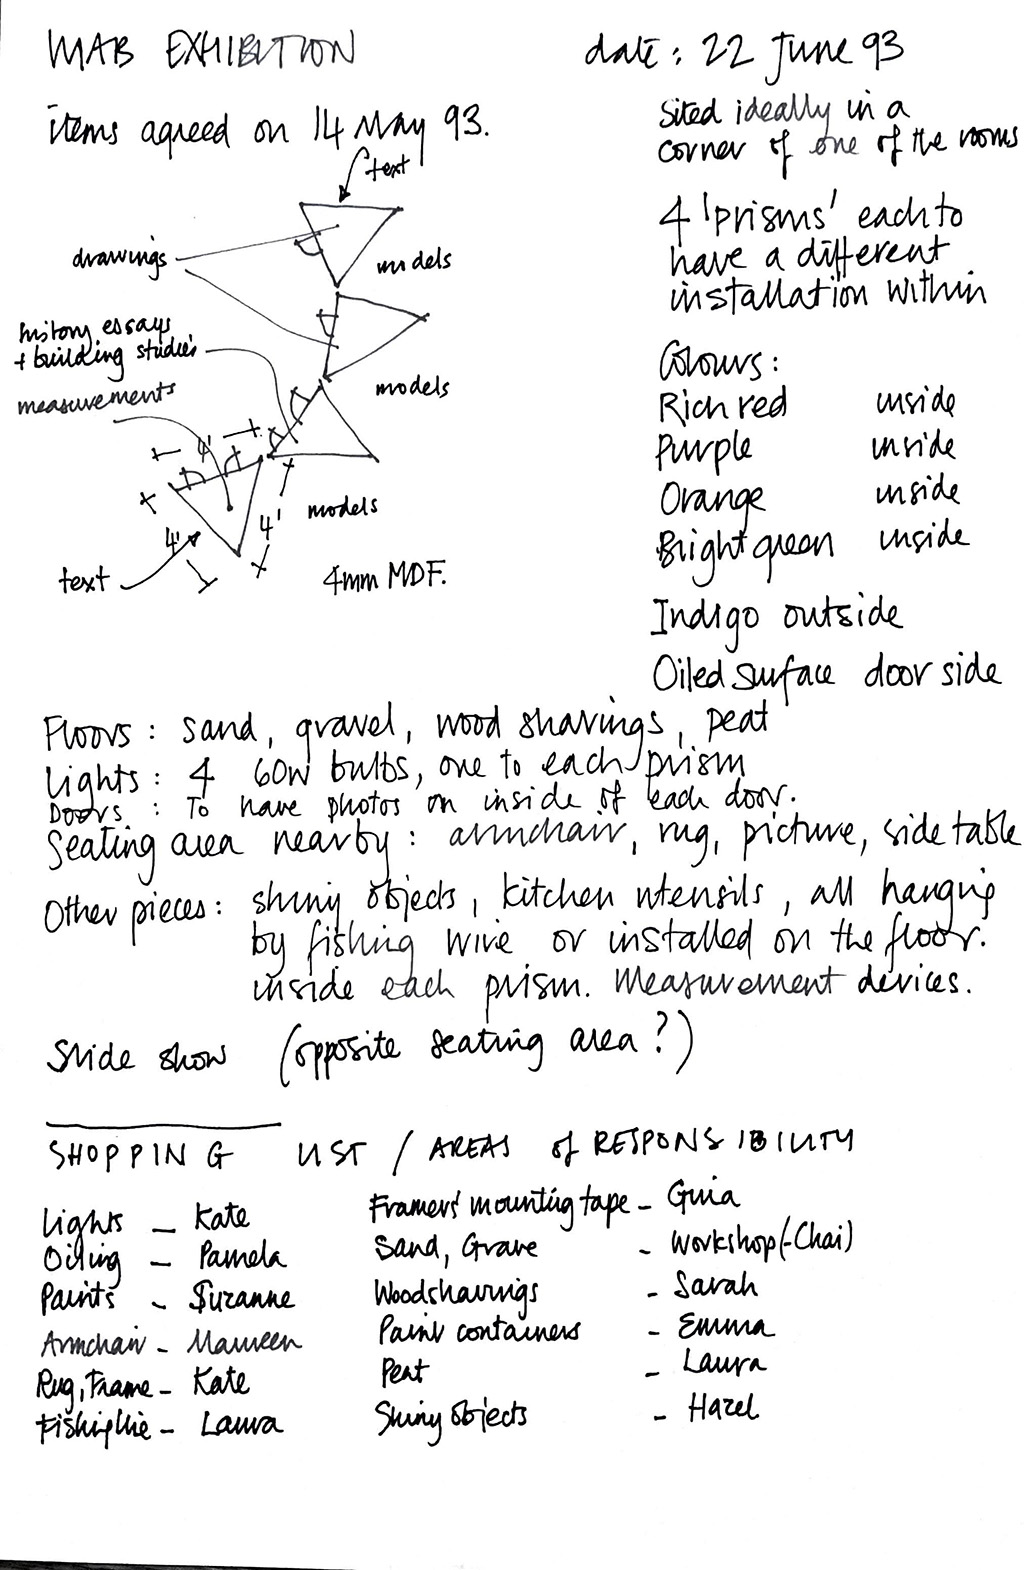 MAB EXHIBITION
date: 22 June 93
items agreed on 14 May 93.
Sited ideally in a
corner of one of the rooms
text
drawings
models
4 'prisms' each to
have a different
installation within
history essays
+ building studies
measurements
models
Colours:
Rich red inside
Purple inside
Orange inside
Bright green inside
4'
4'
4'
models
text
4mm MDF.
Indigo outside
Oiled surface door side
Floors: sand, gravel, wood shavings, peat
Lights: 4 60W bulbs, one to each prism
Doors: To have photos on inside of each door.
Seating area nearby: armchair, rug, picture, side table
Other pieces: shiny objects, kitchen utensils, all hanging
by fishing wire or installed on the floor.
inside each prism. Measurement devices.
Slide show (opposite seating area?)
SHOPPING LIST / AREAS of RESPONSIBILITY
Lights - Kate
Oiling - Pamela
Paints - Suzanne
Armchair - Maureen
Rug, Frame - Kate
- Laura
Framers' mounting tape - Guia
Sand, Grave - Workshop (-Chai)
Woodshavings - Sarah
Paint containers - Emma
Peat - Laura
Shiny objects - Hazel